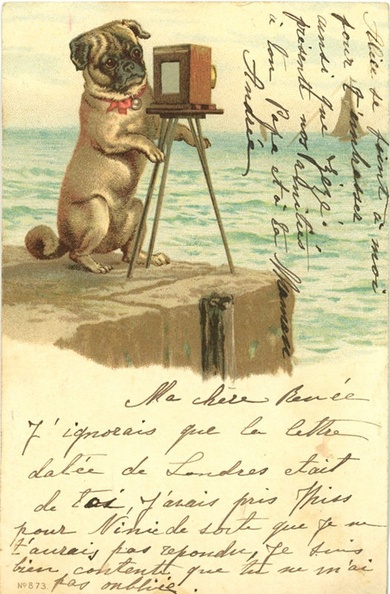 Ma chère Renée
J'ignorais que la lettre
datée de Londres était
de toi, J'avais pris Miss
pour Nini de sorte que je ne
t'aurais pas répondu, Je suis
bien contente que tu ne m'ai
pas oubliée.
Alice se joint à moi
pour t'embrasser
ainsi que Zézé,
présente nos amitiés
à ton Papa et à ta Maman
Andrée
No 873.